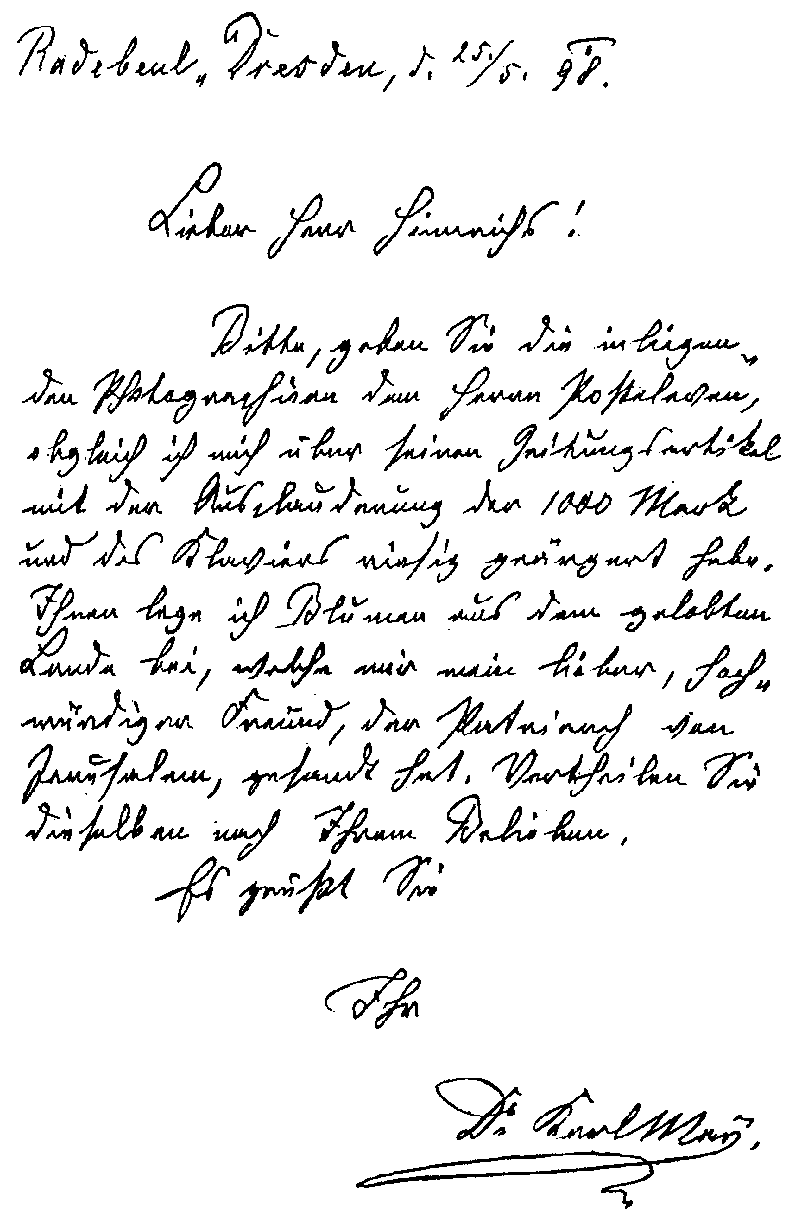 Radebeul-Dresden, d. 25./5. 98.
Lieber Herr Hinrichs!
Bitte, geben Sie die inliegen-
den Photographieen dem Herrn Posteleven,
obgleich ich mich über seinen Zeitungsartikel
mit der Ausplauderung der 1000 Mark
und des Klaviers riesig geärgert habe.
Ihnen lege ich Blumen aus dem gelobten
Lande bei, welche mir mein lieber, hoch-
würdiger Freund, der Patriarch von
Jerusalem, gesandt hat. Vertheilen Sie
dieselben nach Ihrem Belieben.
Es grüßt Sie
Ihr
Dr. Karl May.